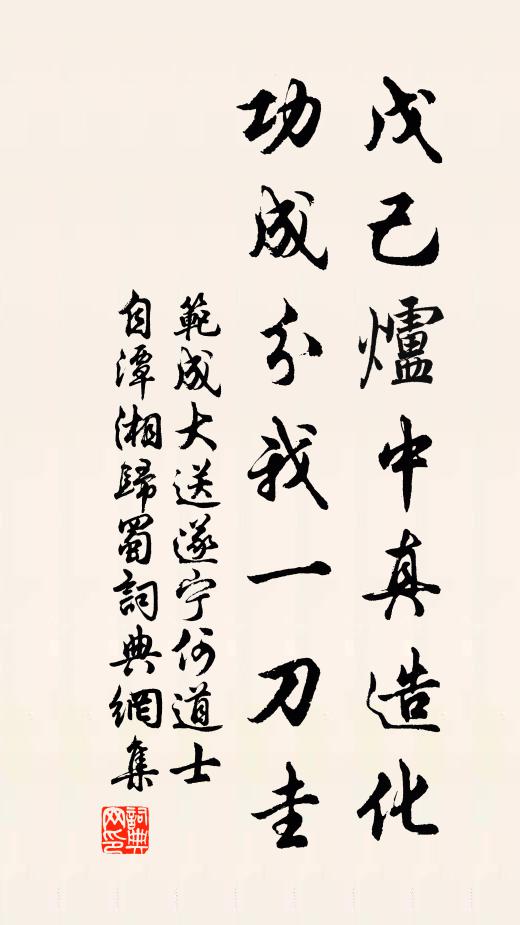 戊己爐中真造化
功成分我一刀圭
範成大送遂宁何道士
自潭湘歸蜀詞典網集
詞典网印